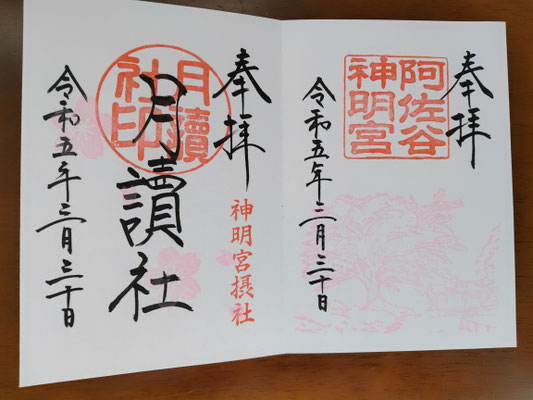 奉拝
阿佐谷
神明宮
令和五年三月三十日
奉拝
神明宮摂社
月讀
社印
月讀社
令和五年三月三十日